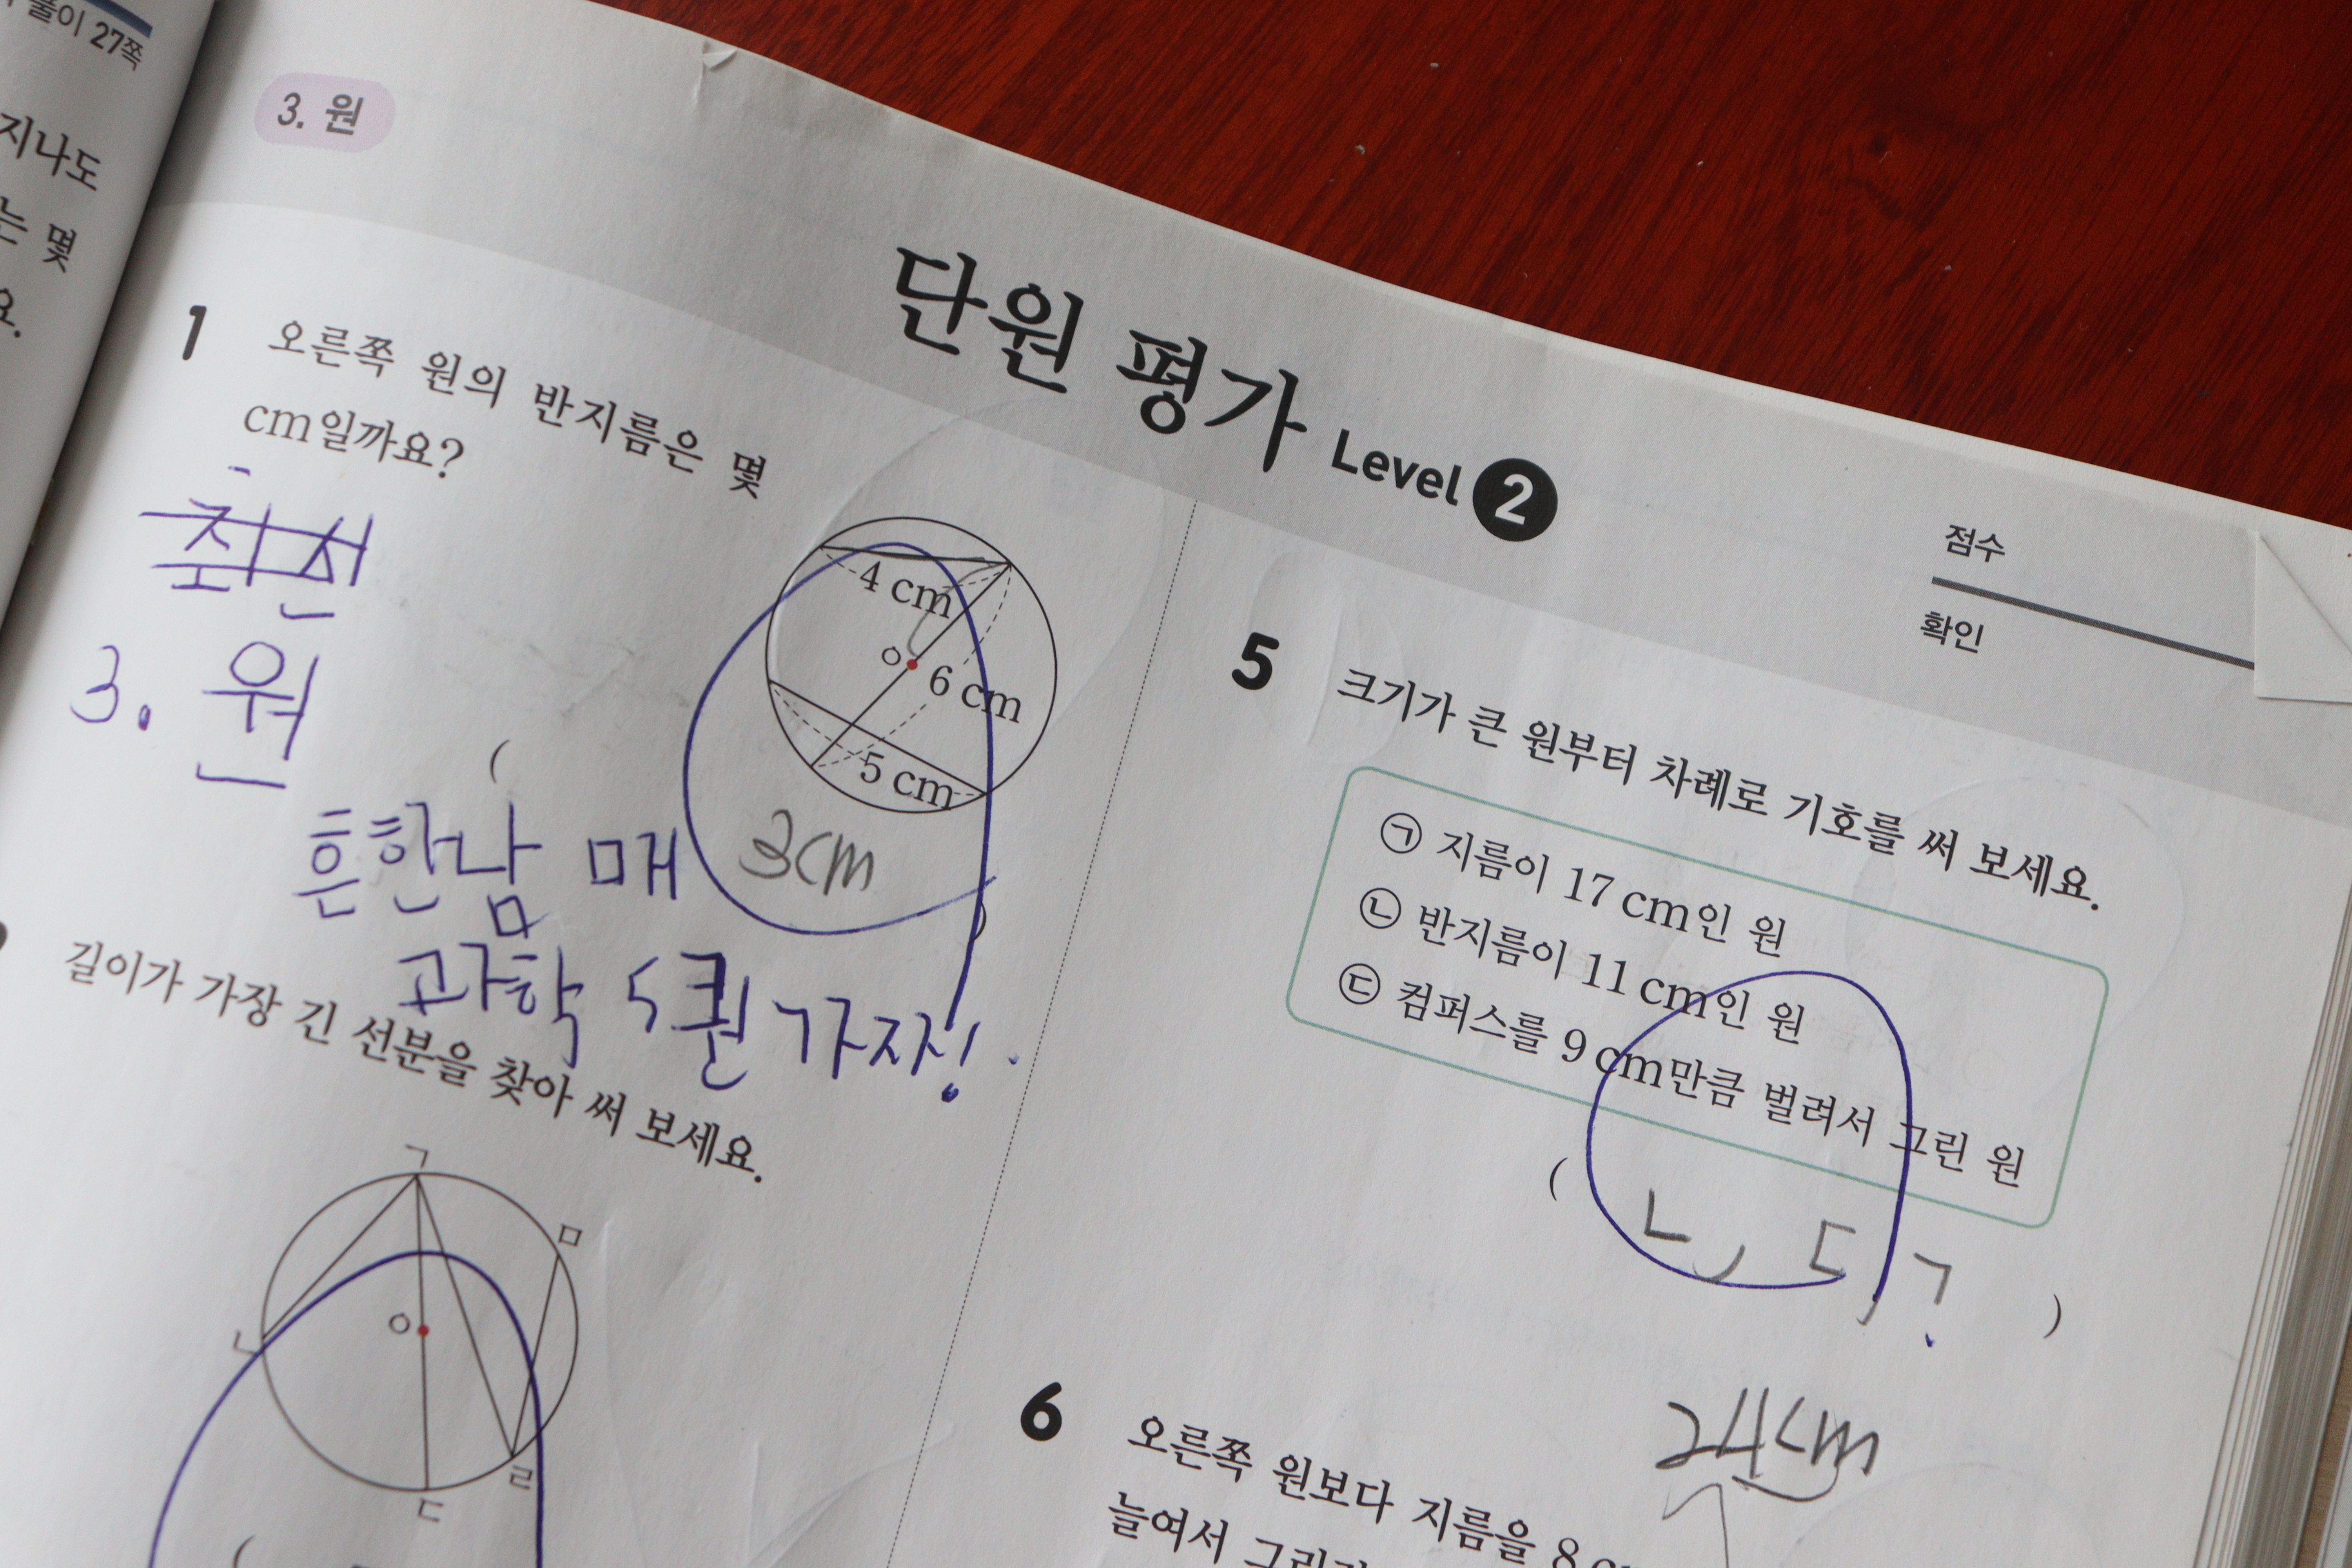 풀이 27쪽
지나도
는 몇
요.
3. 원
단원 평가 Level 2
점수
확인
1 오른쪽 원의 반지름은 몇
cm일까요?
4 cm
ㅇ
6 cm
5 cm
3. 원
(
3cm
)
흔한남매
과학 5권 가자!
길이가 가장 긴 선분을 찾아 써 보세요.
ㄱ
ㅁ
ㄴ
ㅇ
ㄹ
ㄷ
(
5 크기가 큰 원부터 차례로 기호를 써 보세요.
㉠ 지름이 17 cm인 원
㉡ 반지름이 11 cm인 원
㉢ 컴퍼스를 9 cm만큼 벌려서 그린 원
( ㄴ, ㄷ, ㄱ )
24cm
6 오른쪽 원보다 지름을 8 c
늘여서 그리